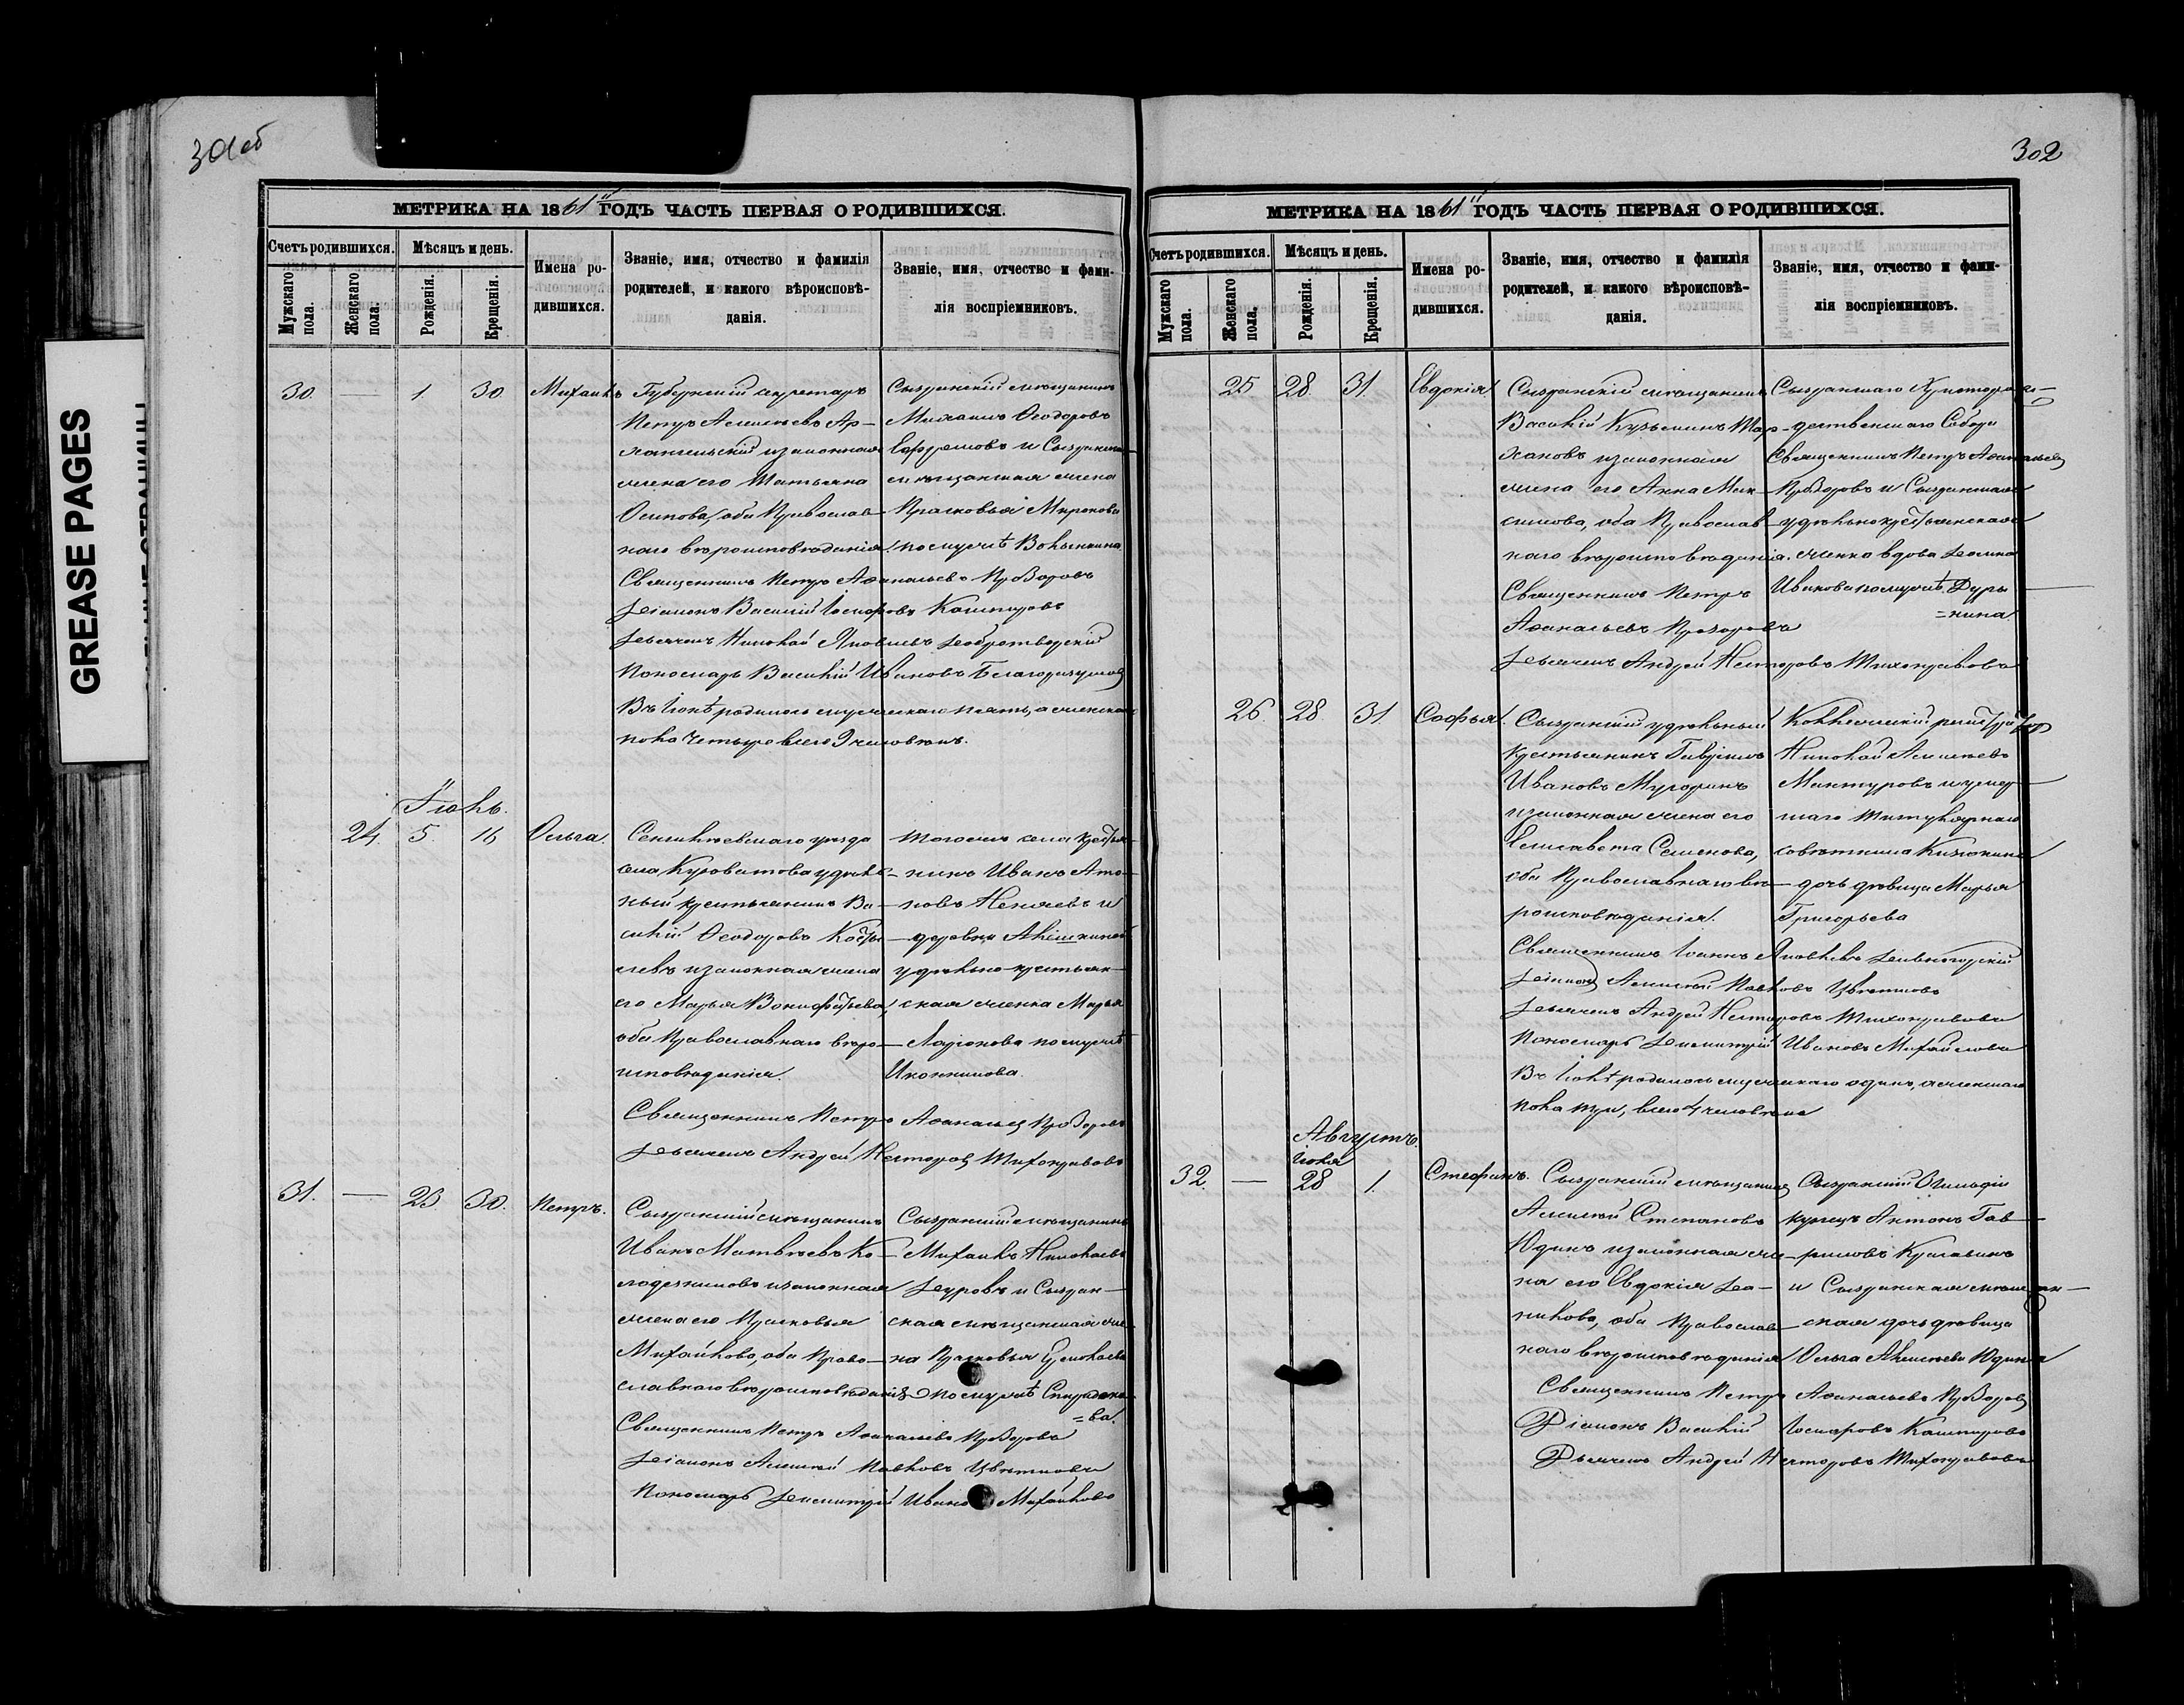 301об
302
GREASE PAGES
МЕТРИКА НА 1861й ГОДЪ ЧАСТЬ ПЕРВАЯ О РОДИВШИХСЯ.
Счетъ родившихся. Мѣсяцъ и день. Имена родившихся. Званіе, имя, отчество и фамилія родителей, и какого вѣроисповѣданія. Званіе, имя, отчество и фамилія воспріемниковъ.
Мужскаго пола. Женскаго пола. Рожденія. Крещенія.
30. — 1 30. Михаилъ
Губернскій секретарь
Петръ Алексѣевъ Ар-
хангельскій и законная
жена его Татьяна
Осипова, оба Православ-
наго вѣроисповѣданія.
Сызранскій мѣщанинъ
Михаилъ Ѳеодоровъ
Ефремовъ и Сызранская
мѣщанская жена
Прасковья Миронова
по мужѣ
Священникъ Петръ Аѳанасьевъ Прозоровъ
Діаконъ Василій Іосифовъ
Дьячекъ Николай Яковлевъ
Пономарь Василій Ивановъ Благоразумовъ
Въ Іюнѣ родилось мужескаго пять, а женскаго
пола четыре всего 9 человѣкъ.
Іюль.
24. 5. 16 Ольга.
Сенгилѣевскаго уѣзда
села Куроватова удѣль-
ный крестьянинъ Ва-
силій Ѳеодоровъ
и законная жена
его Марья Вонифатьева,
оба Православнаго вѣро-
исповѣданія.
тогоже села крестья-
нинъ Иванъ
Неняевъ и
деревни
удѣльно-крестьян-
ская женка Марья
Ларіонова по мужѣ
Иконникова.
Священникъ Петръ Аѳанасьевъ Прозоровъ
Дьячекъ Андрей Несторовъ Тихонравовъ
31. — 23 30. Петръ.
Сызранскій мѣщанинъ
Иванъ Матвѣевъ Ко-
лодезниковъ и законная
жена его Прасковья
Михайлова, оба Право-
славнаго вѣроисповѣданія
Сызранскій мѣщанинъ
Михаилъ Николаевъ
и Сызран-
ская мѣщанская же-
на Прасковья Ермолаева
по мужѣ Спиридоно-
=ва.
Священникъ Петръ Аѳанасьевъ Прозоровъ
Діаконъ Алексѣй Павловъ Цвѣтковъ
Пономарь Димитрій Ивановъ Михайловъ
МЕТРИКА НА 1861й ГОДЪ ЧАСТЬ ПЕРВАЯ О РОДИВШИХСЯ.
Счетъ родившихся. Мѣсяцъ и день. Имена родившихся. Званіе, имя, отчество и фамилія родителей, и какого вѣроисповѣданія. Званіе, имя, отчество и фамилія воспріемниковъ.
Мужскаго пола. Женскаго пола. Рожденія. Крещенія.
25 28. 31. Евдокія.
Сызранскій мѣщанинъ
Василій Кузьминъ Тар-
хановъ и законная
жена его Анна Мак-
симова, оба Православ-
наго вѣроисповѣданія.
Сызранскаго Христорож-
дественскаго Собора
Священникъ Петръ Аѳанасьевъ
Прозоровъ и Сызранская
удѣльнокрестьянская
женка вдова
Иванова по мужѣ Дуры-
=нина
Священникъ Петръ
Аѳанасьевъ Прозоровъ
Дьячекъ Андрей Несторовъ Тихонравовъ
26. 28. 31. Софья.
Сызранскій удѣльный
крестьянинъ Гавріилъ
Ивановъ
и законная жена его
Елисавета Семенова,
оба Православнаго вѣ-
роисповѣданія.
Коллежскій регистраторъ
Николай Алексѣевъ
Мантуровъ и умер-
шаго Титулярнаго
совѣтника
дочь дѣвица Марья
Григорьева
Священникъ Іоаннъ Яковлевъ
Діаконъ Алексѣй Павловъ Цвѣтковъ
Дьячекъ Андрей Несторовъ Тихонравовъ
Пономарь Димитрій Ивановъ Михайловъ
Въ Іюлѣ родилось мужескаго одинъ, а женскаго
пола три, всего 4 человѣка
Августъ.
Іюля
32. — 28 1. Стефанъ.
Сызранскій мѣщанинъ
Алексѣй Степановъ
Юдинъ и законная же-
на его Евдокія Дани-
лова, оба Православ-
наго вѣроисповѣданія
Сызранскій 3й гильдіи
купецъ Антонъ Гав-
риловъ Красавинъ
и Сызранская мѣщан-
ская дочь дѣвица
Ольга Алексѣева Юдина
Священникъ Петръ Аѳанасьевъ Прозоровъ
Діаконъ Василій Іосифовъ
Дьячекъ Андрей Несторовъ Тихонравовъ